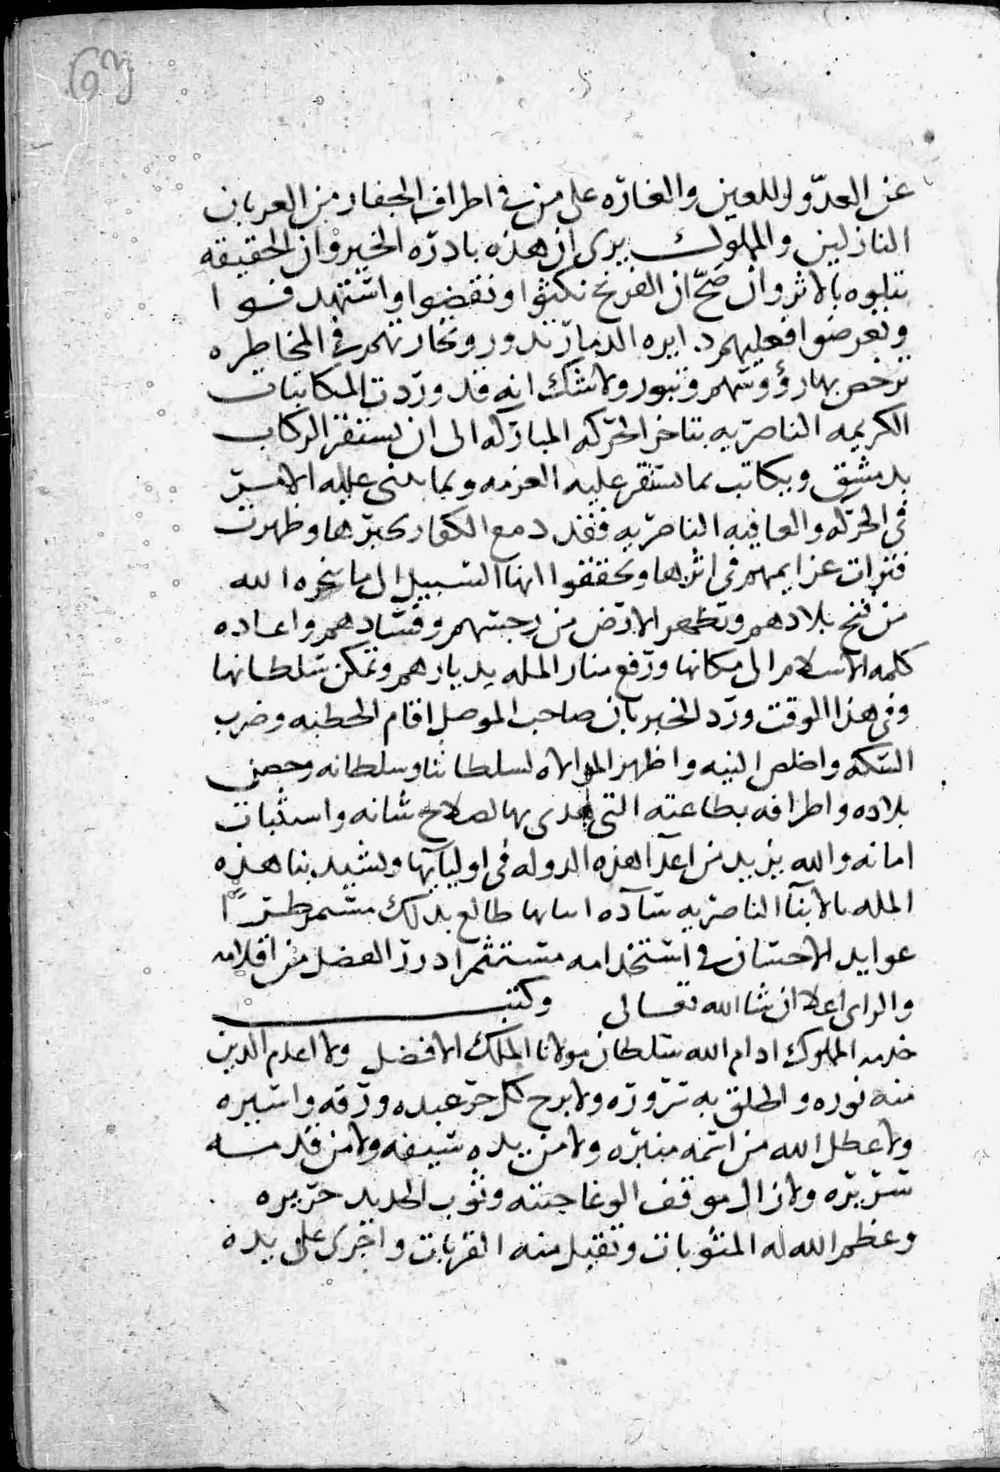 عن العدو اللعين والغاره على من في اطراف الجفار من العربان
النازلين والمملوك يرى ان هذه بادره الخير وان الحقيقه
تتلوه بالاثر وان صح ان الفرنج نكثوا ونقضوا واستهدفوا
وتعرضوا فعليهم دايره الدبار تدور وتجارتهم في المخاطره
ترخص بها رؤوسهم وتبور ولا شك انه قد وردت المكاتبات
الكريمه الناصريه بتاخر الحركه المباركه الى ان يستقر الركاب
بدمشق ويكاتب بما يستقر عليه العزمه وبما يبنى عليه الامر
في الحركه والعافيه الناصريه فقد دمع الكفار خبرها وظهرت
فترات عزايمهم في اثرها وتحققوا انها السبيل الى ما ينجزه الله
من فتح بلادهم وتطهير الارض من رجسهم وفسادهم واعاده
كلمه الاسلام الى مكانها ورفع منار المله بديارهم وتمكن سلطانها
وفي هذا الوقت ورد الخبر بان صاحب الموصل اقام الخطبه وضرب
السكه واخلص النيه واظهر الموالاه لسلطاننا وسلطانه وحصن
بلاده واطرافه بطاعته التي هدى بها لصلاح شانه واستثبات
امانه والله يزيد من اعدا هذه الدوله في اوليايها ويشيد بنا هذه
المله بالابنا الناصريه ساده ابنايها طالع بذلك مستمطرا
عوايد الاحسان في استخدامه مستنثرا درر الفضل من اقلامه
والراى اعلا ان شا الله تعالى وكتب
خدمه المملوك ادام الله سلطان مولانا الملك الافضل ولا اعدم الدين
منه نوره واطلق به سروره ولا برح كل حر عبده ورقه واسيره
ولا عطل الله من اسمه منبره ولا من يده سيفه ولا من قدمه
سريره ولا زال موقف الوغا جنته وثوب الحديد حريره
وعظم الله له المثوبات وتقبل منه القربات واجرى على يده